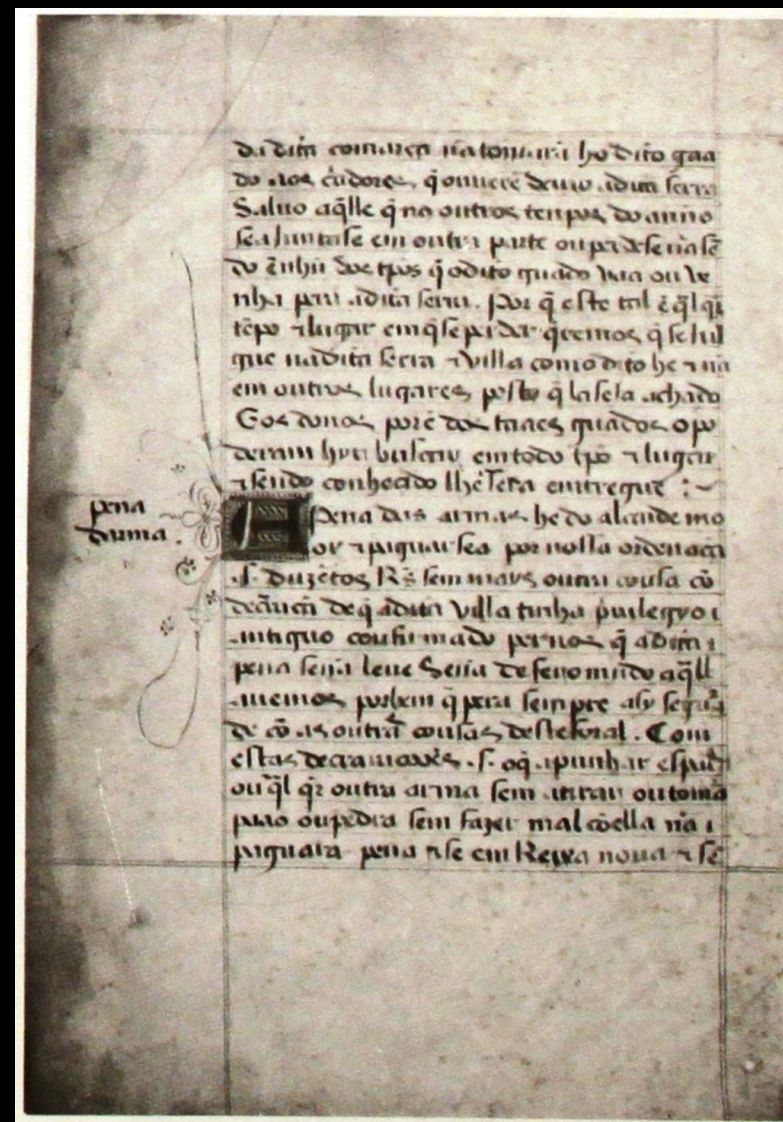 da dita comarca nã tomarã ho dito gaa
do aos criadores, q̃ ouuerẽ deuir a dita serra
Saluo aq̃lle q̃ no outros tempos do anno
se aJuntase em outra parte ou perdese nã sẽ
do ẽ nhũ dos tp̃os q̃ o dito guado vaa ou ve
nha pera a dita serra. Por q̃ este tal ẽ q̃l q̃r
tẽpo ⁊ lugar em q̃ se perder q̃remos q̃ se Jul
gue na dita serra ⁊ villa como dito he ⁊ nã
em outros lugares posto q̃ la seJa achado
E os donos porẽ dos taaes guados o po
deram hyr buscar em todo tp̃o ⁊ lugar
⁊ sendo conhecido lhe sera emtregue :~
pena
darma.
A Pena das armas he do alcaide mo
or ⁊ paguar sea por nossa ordenaçã
.s. duzẽtos R̃s sem mays outra cousa cõ
decraraçã de q̃ a dita villa tinha priuilegyo
antiguo confirmado per nos q̃ a dita
pena seria leue Seria deseromado aq̃ll
auemos por bem q̃ pera sempre asy se guar
de cõ as outras cousas deste foral. Com
estas decraraçoões .s. o q̃ apunhar espada
ou q̃l q̃r outra arma sem a tirar ou tomar
paao ou pedra sem fazer mal cõ ella nã
paguara pena ⁊ se em Reixa noua ⁊ sẽ